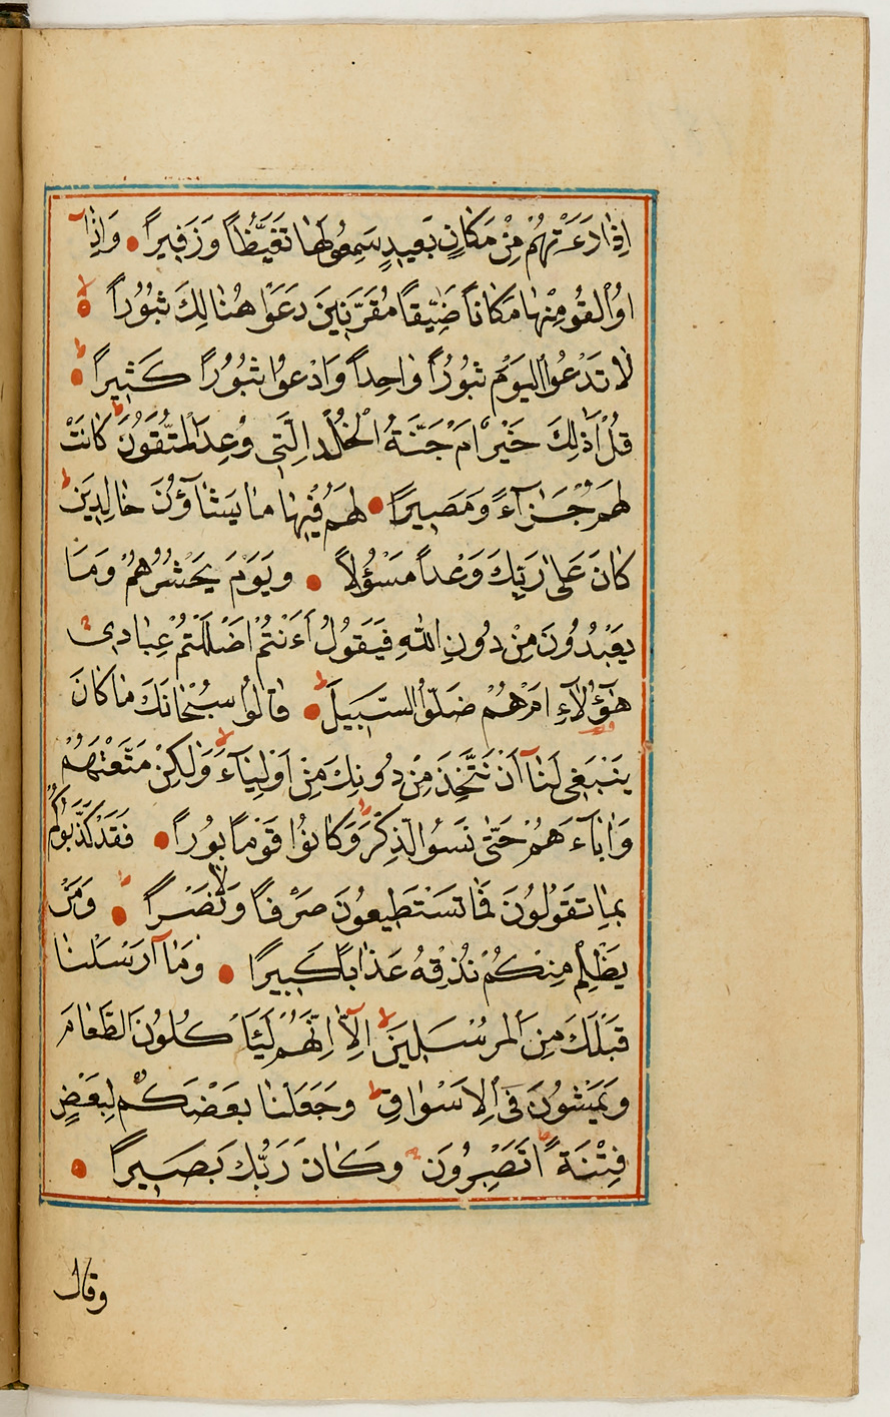 اِذٰا دَعَتْهُمْ مِنْ مَكٰانٍ بَعِيدٍ سَمِعُوا لَهٰا تَغَيُّظاً وَزَفِيراً وَاِذٰٓا
اُوُلْقُو مِنْهٰا مَكٰاناً ضَيِّقاً مُقَرَّنِينَ دَعَوْا هُنٰا لِكَ ثُبُوُراً
لٰا تَدْعُوا الْيَوْمَ ثُبُوُراً وٰاحِداً وَادْعُوا ثُبُوُراً كَثِيراً
قُلْ اَذٰلِكَ خَيْرٌ اَمْ جَنَّةُ الْخُلْدِ الَّتِى وُعِدَ الْمُتَّقُونَ كٰانَتْ
لَهُمْ جَزٰٓاءً وَمَصِيراً لَهُمْ فِيهٰا مٰا يَشٰٓاؤُنَ خٰالِدِينَ
كٰانَ عَلىٰ رَبِّكَ وَعْداً مَسْؤُلاً وَيَوْمَ يَحْشُرُهُمْ وَمٰا
يَعْبُدُونَ مِنْ دُونِ اللّٰهِ فَيَقُولُ ءَاَنْتُمْ اَضْلَلْتُمْ عِبٰادِى
هٰٓؤُلٰٓاءِ اَمْ هُمْ ضَلُّوا السَّبِيلَ قٰالُوا سُبْحٰانَكَ مٰا كٰانَ
يَنْبَغِى لَنٰٓا اَنْ نَتَّخِذَ مِنْ دُونِكَ مِنْ اَوْلِيٰٓاءَ وَلٰكِنْ مَتَّعْتَهُمْ
وَاٰبٰٓاءَهُمْ حَتّٰى نَسُوا الذِّكْرَ وَكٰانُوا قَوْماً بُوراً فَقَدْ كَذَّبُوكُمْ
بِمٰا تَقُولُونَ فَمٰا تَسْتَطِيعُونَ صَرْفاً وَلٰا نَصْراً وَمَنْ
يَظْلِمْ مِنْكُمْ نُذِقْهُ عَذٰاباً كَبِيراً وَمٰٓا اَرْسَلْنٰا
قَبْلَكَ مِنَ الْمُرْسَلِينَ اِلّٰٓا اِنَّهُمْ لَيَاْكُلُونَ الطَّعٰامَ
وَيَمْشُونَ فِى الْاَسْوٰاقِ وَجَعَلْنٰا بَعْضَكُمْ لِبَعْضٍ
فِتْنَةً اَتَصْبِرُونَ وَكٰانَ رَبُّكَ بَصِيراً
وقال